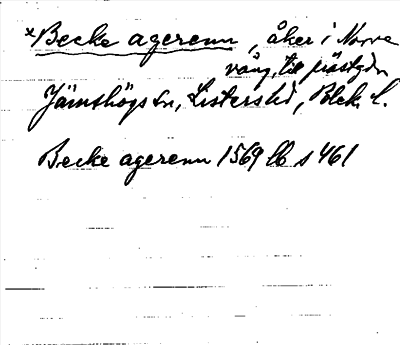 *Becke agerenn, åker i Norre
vång, til prästgdn
Jämshögs sn, Listers hd, Blek. l.
Becke agerenn 1569 lb s 461